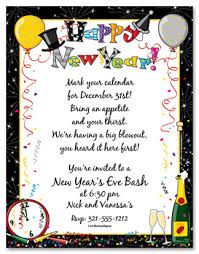 Happy
New Year!
Mark your calendar
for December 31st!
Bring an appetite
and your thirst.
We're having a big blowout,
you heard it here first!
You're invited to a
New Year's Eve Bash
at 6:30 pm
Nick and Vanessa's
RSVP: 321-555-1212